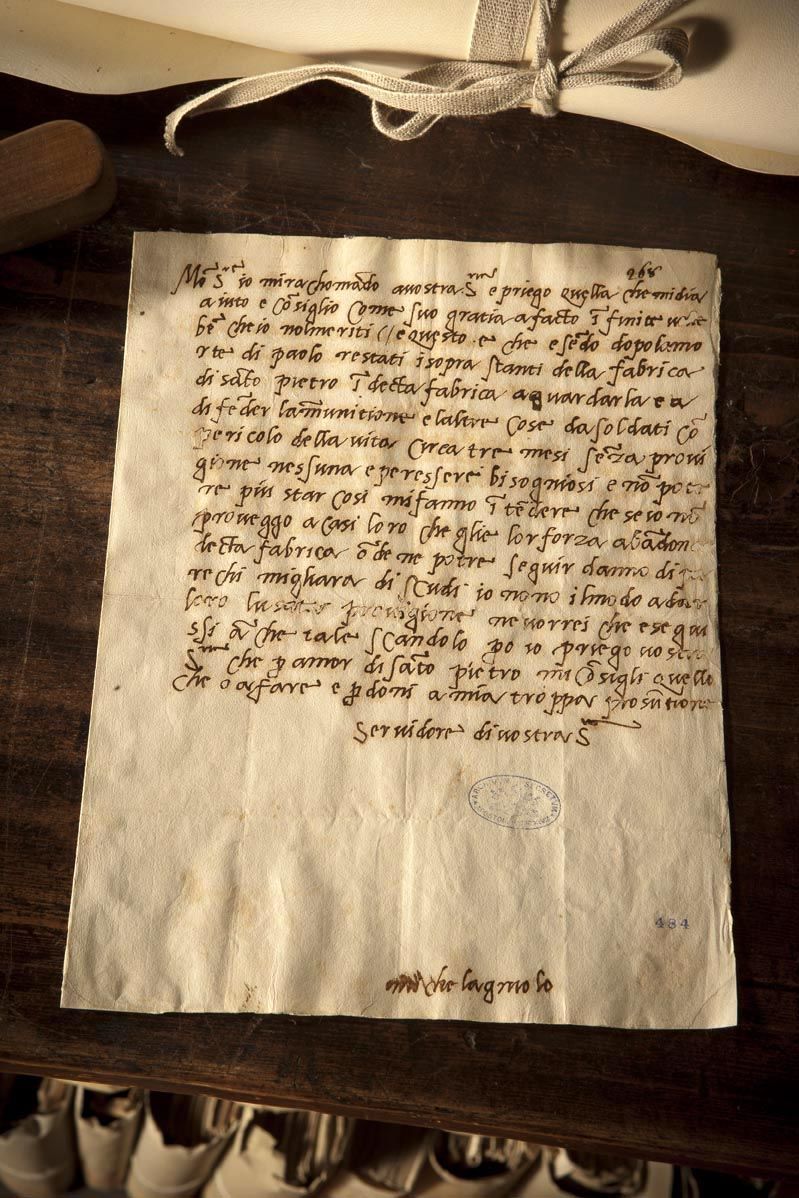 268
Mo͂ S.re io mi rachoma͂do a vostra S.ria e priego quella che mi dia
aiuto e co͂siglio come suo gratia a facto i͂finite
be͂ che io nol meriti (/ e questo e che ese͂do dopo la mo
rte di paolo restati i sopra stanti della fabrica
di sa͂to pietro i͂ decta fabrica a guardarla e a
dife͂der la mu͂nitione e laltre cose da soldati co͂
pericolo della vita circa tre mesi se͂za provi
gione nessuna e per essere bisogniosi e no͂ pote
re piu star cosi mi fanno i͂te͂dere che se io no͂
proveggo a casi loro che glie lor forza aba͂don
decta fabrica o͂de ne potre seguir danno di
rechi migliara di scudi io no no il modo a dar
loro provigione ne vorrei che e segui
ssi a͂che tale scandolo po io priego vostra
S.ria che p amor di sa͂to pietro mi co͂sigli quello
che o a fare e p doni a mia troppa prosu͂tione
Servidore di vostra S.ria
ARCHIVUM SECRETUM
484
michelagniolo